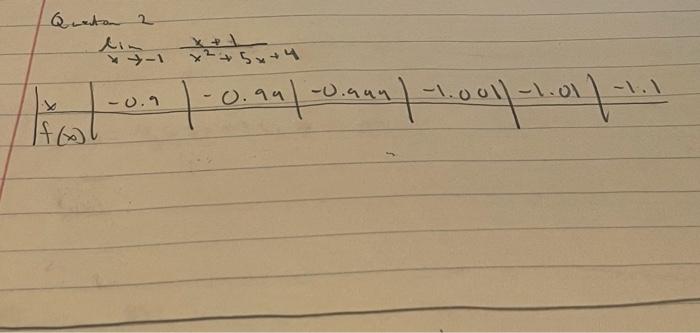 Question 2
lim x→-1 x+1/x²+5x+4
x | -0.9 | -0.99 | -0.999 | -1.001 | -1.01 | -1.1
f(x)